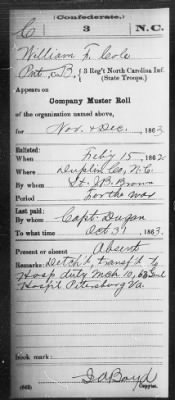 (Confederate.)
C 3 N.C.
William F. Cole
Pvt. Co. B, 3 Reg't North Carolina Inf.
(State Troops.)
Appears on
Company Muster Roll
of the organization named above,
for Nov. & Dec., 1863
Enlisted:
When Feby 15, 1862
Where Duplin Co, N.C.
By whom Lt. J.B. Brown
Period for the war
Last paid:
By whom Capt. Dugan
To what time Oct 31, 1863.
Present or absent Absent
Remarks: Detch'd, transf'd to
Hosp duty Mch 10, 63
Hospit Petersburg Va.
Book mark:
(642) Copyist.